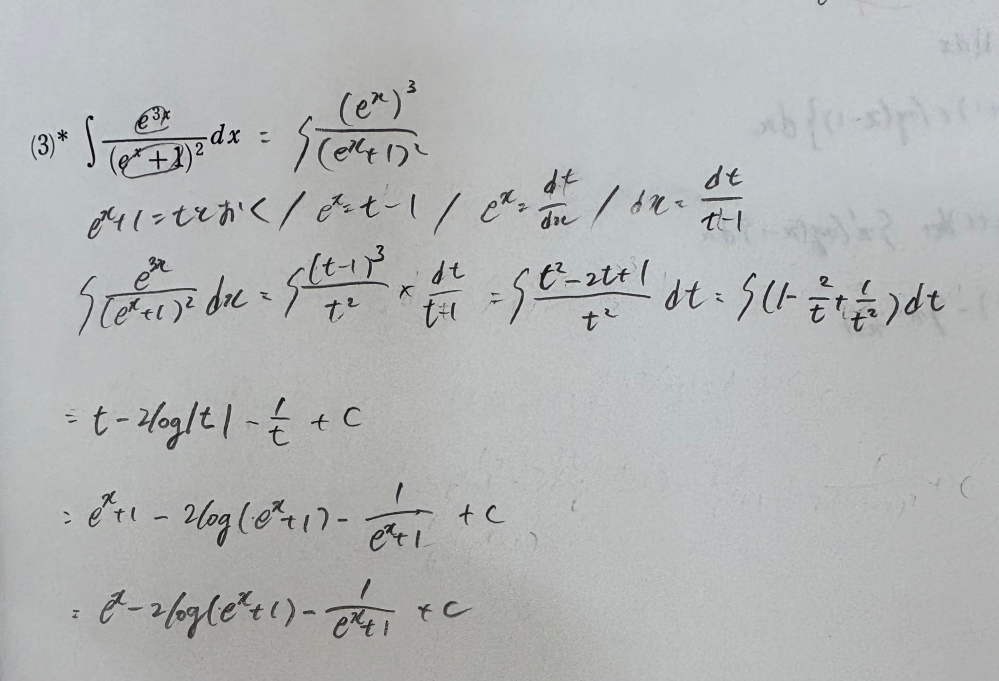 (3)* ∫ e^{3x}/(e^x+1)^2 dx = ∫ (e^x)^3/(e^x+1)^2
e^x+1=tとおく / e^x=t-1 / e^x=dt/dx / dx=dt/(t-1)
∫ e^{3x}/(e^x+1)^2 dx = ∫ (t-1)^3/t^2 × dt/(t-1) = ∫ (t^2-2t+1)/t^2 dt = ∫(1-2/t+1/t^2)dt
= t-2log|t|-1/t+C
= e^x+1-2log(e^x+1)-1/(e^x+1)+C
= e^x-2log(e^x+1)-1/(e^x+1)+C